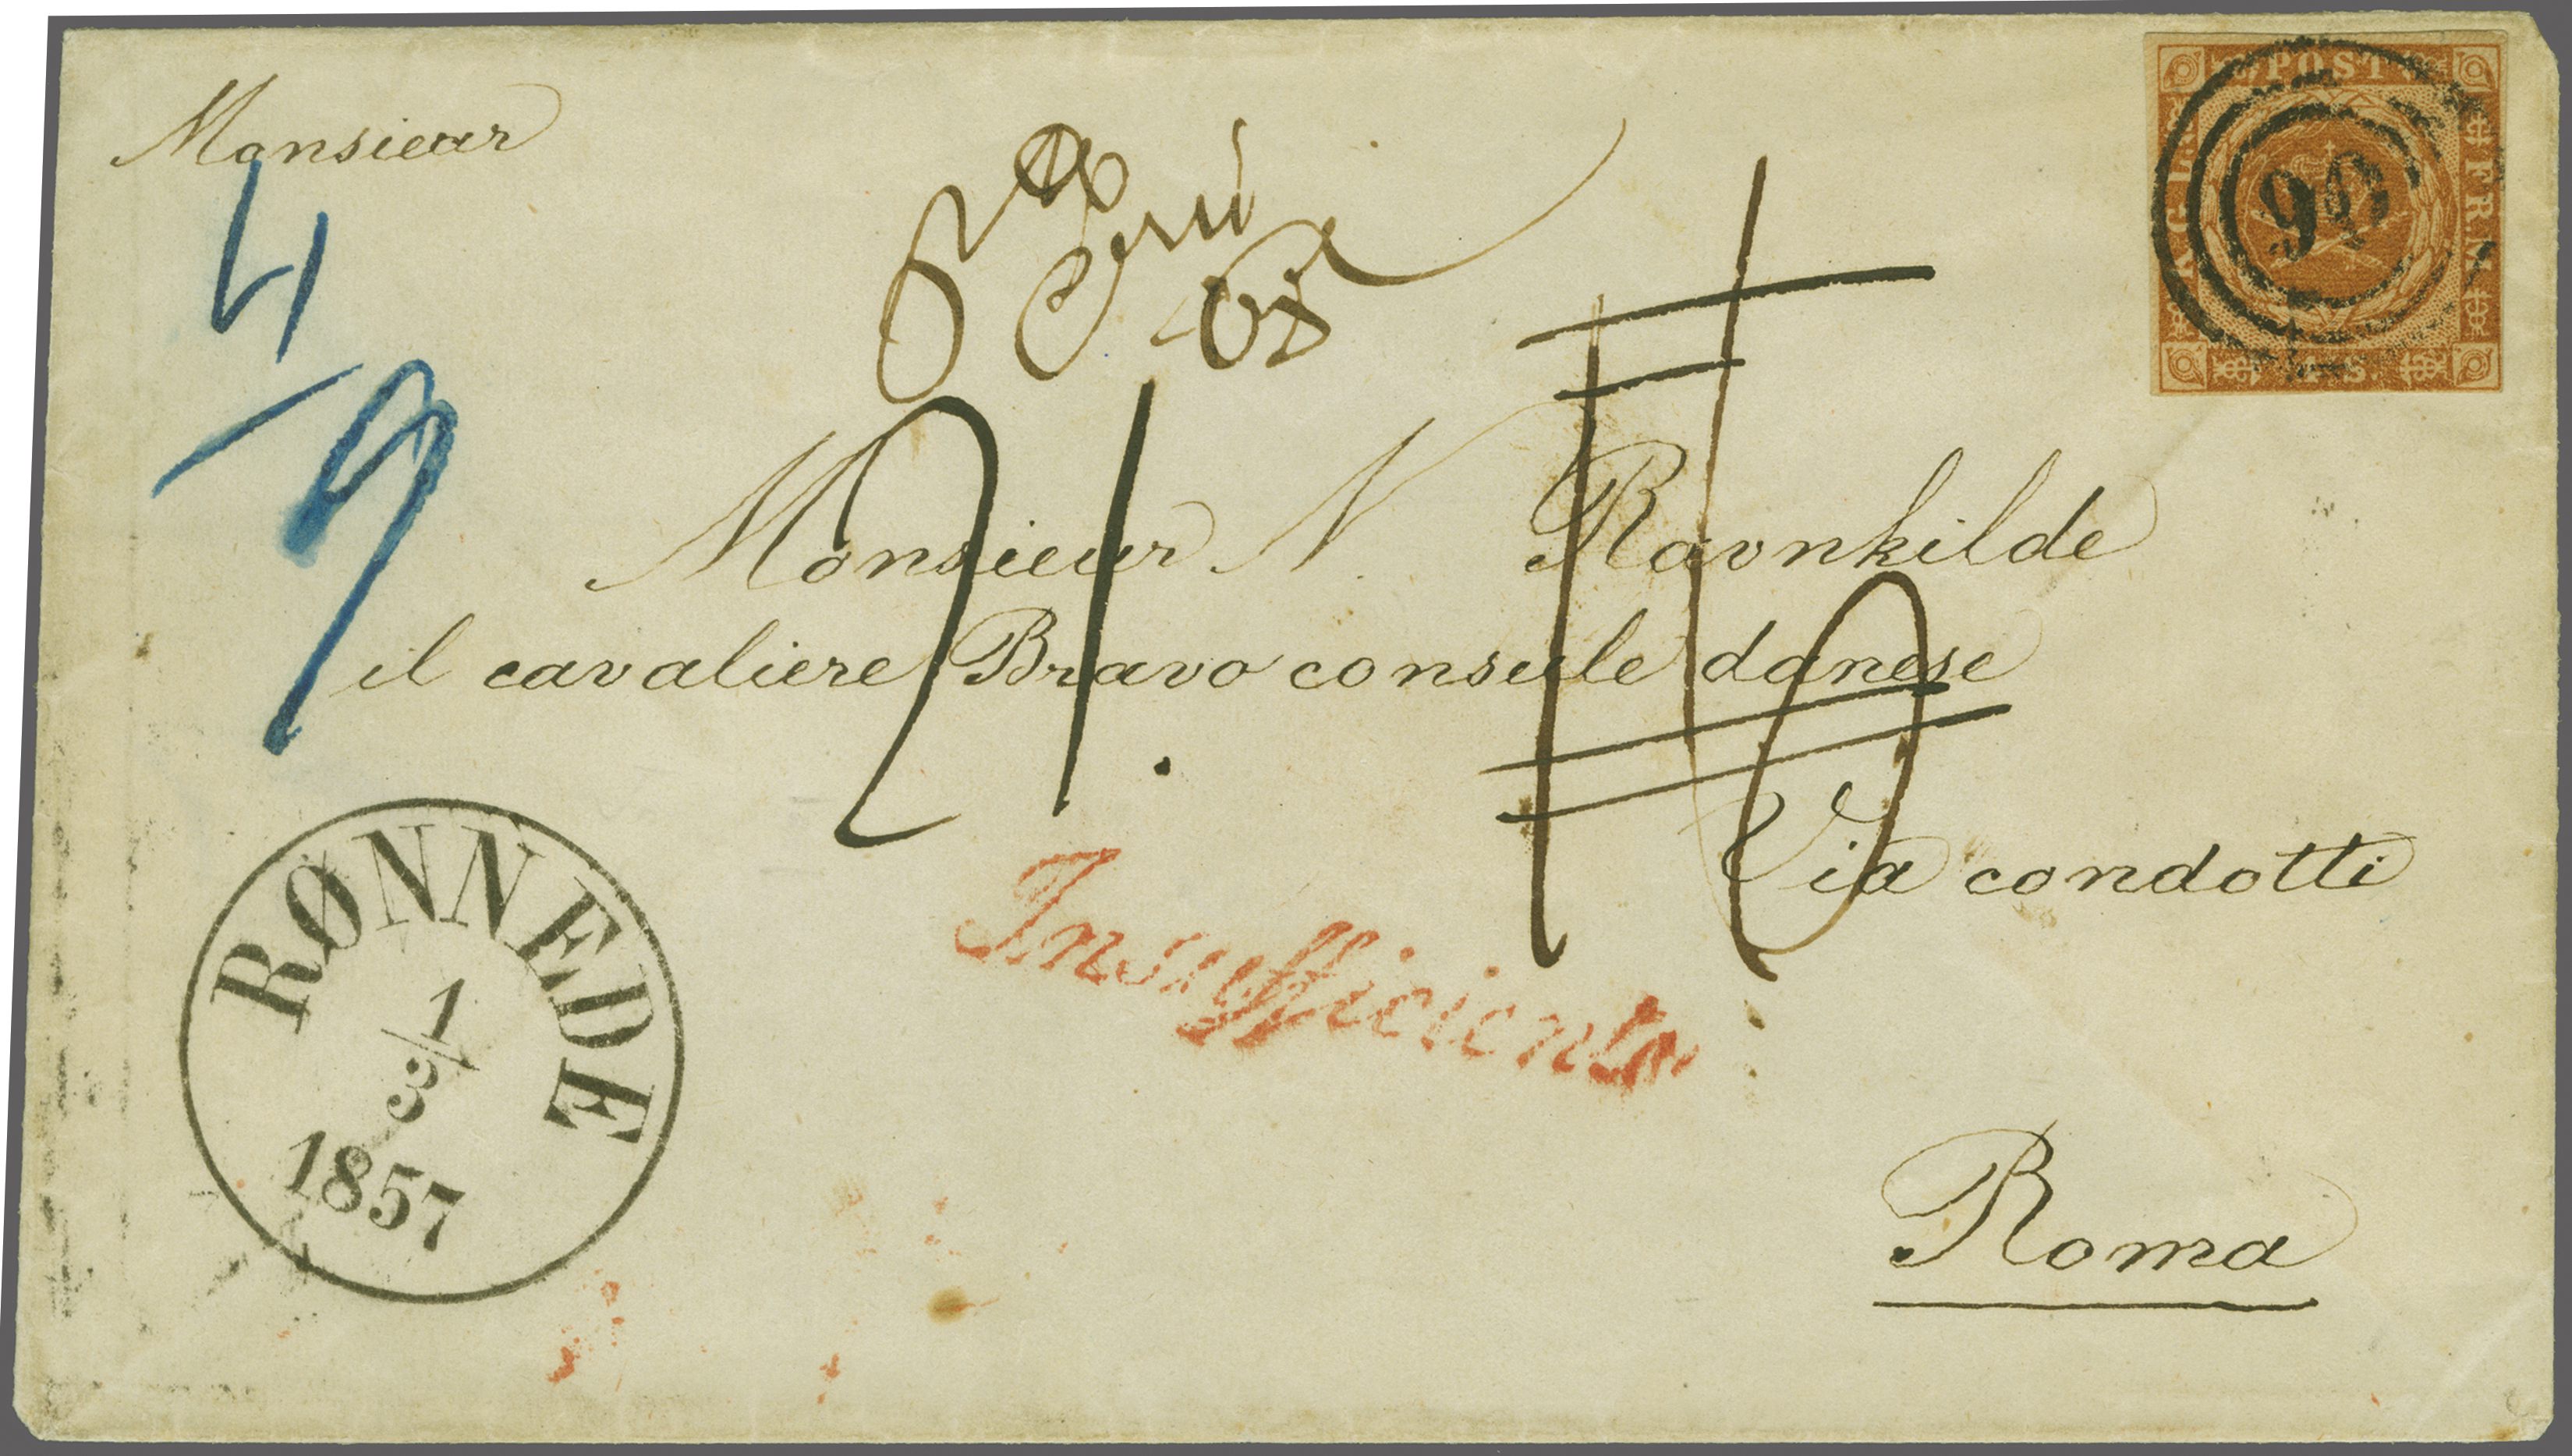 Monsieur
POST
K.G.L.
FRM
4 S.
90
4
9
21.
Monsieur N. Ravnkilde
il cavaliere Bravo consule danese
Via condotti
Insufficiente
RØNNEDE
1/3
1857
Roma